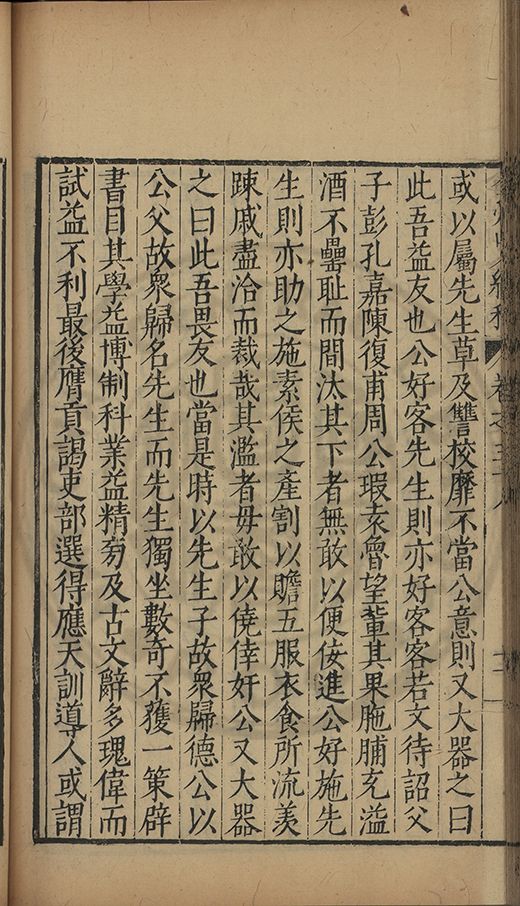 卷之三
或以屬先生草及讐校靡不當公意則又大器之曰
此吾益友也公好客先生則亦好客客若文待詔父
子彭孔嘉陳復甫周公瑕袁魯望輩其果胹脯充溢
酒不罍耻而間汰其下者無敢以便佞進公好施先
生則亦助之施素侯之產割以贍五服衣食所流羨
踈戚盡洽而裁哉其濫者毋敢以僥倖奸公又大器
之曰此吾畏友也當是時以先生子故衆歸德公以
公父故衆歸名先生而先生獨坐數奇不獲一策辟
書目其學益博制科業益精旁及古文辭多瑰偉而
試益不利最後膺貢謁吏部選得應天訓導人或謂